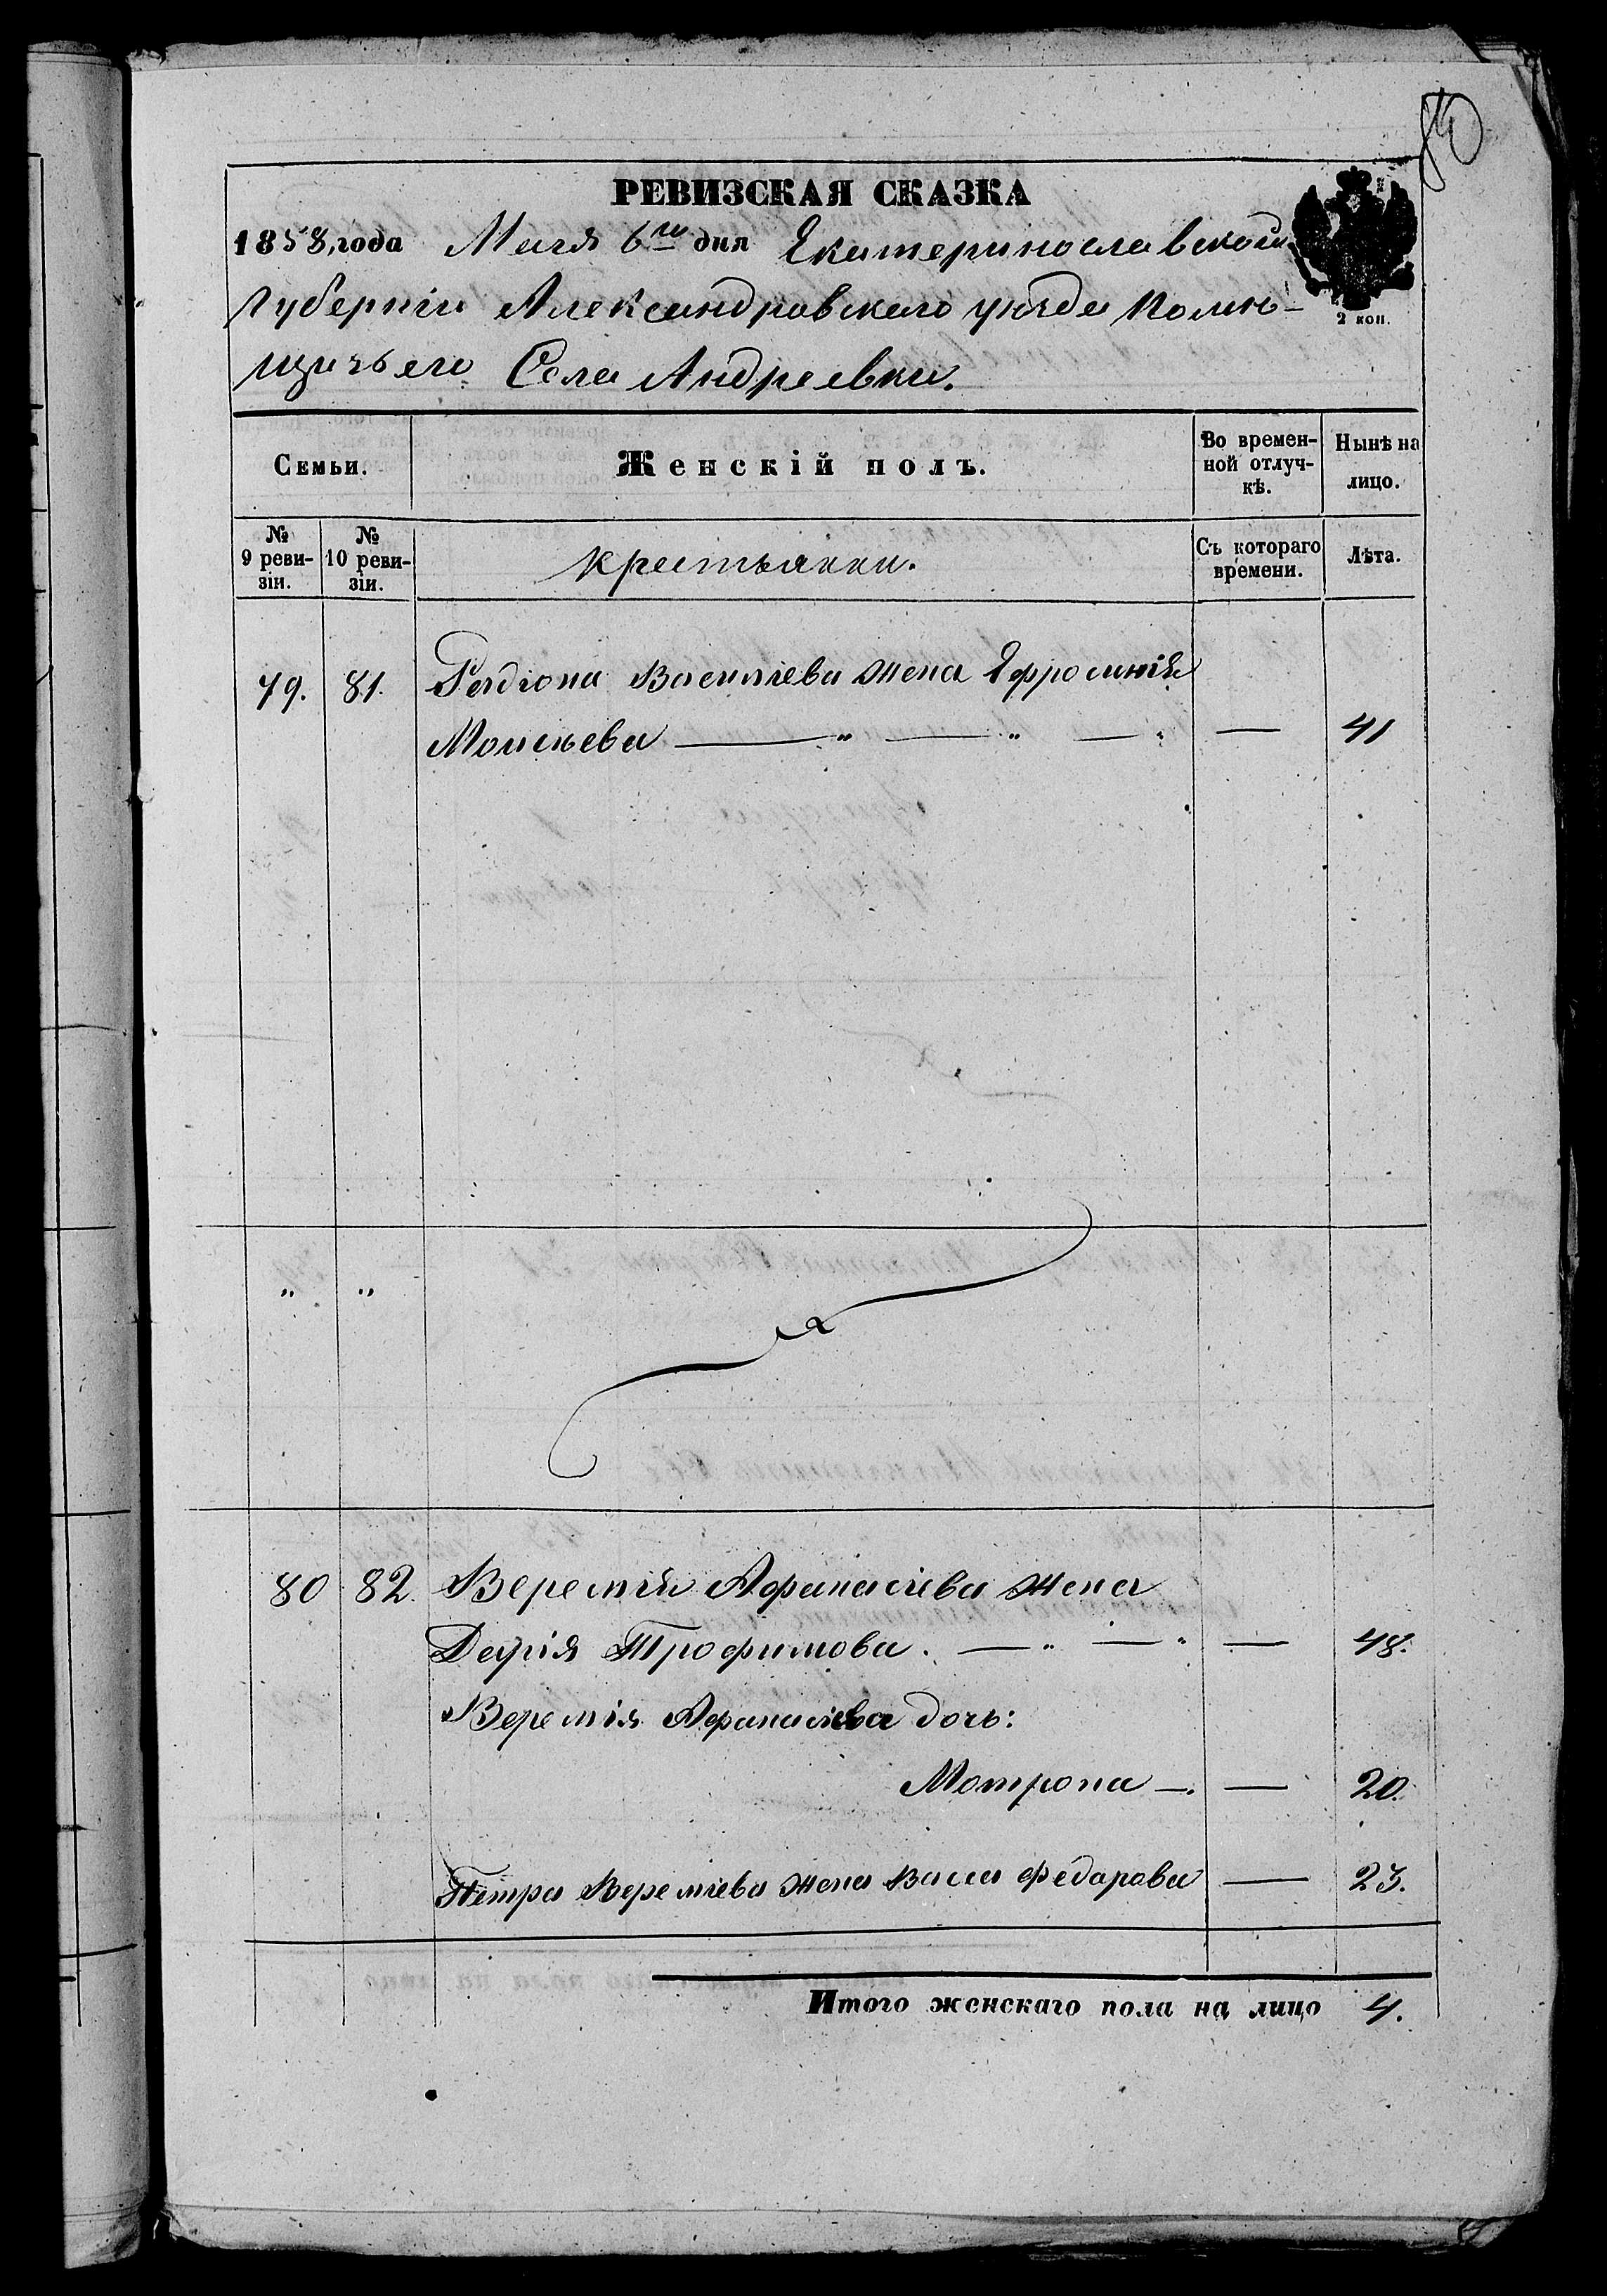 РЕВИЗСКАЯ СКАЗКА
1858, года Мая 6го дня Екатеринославской
Губерніи Александровского уѣзда Помѣ-
щичьего Села Андреевки.
2 коп.
Семьи.
Женскій полъ.
Во времен-
ной отлуч-
кѣ.
Нынѣ на
лицо.
№
9 реви-
зіи.
№
10 реви-
зіи.
крестьянки.
Съ котораго
времени.
Лѣта.
79. 81. Родіона Василіева жена Ефросинія
Моисѣева — " — " — — 41
" "
80 82. Веремія Афанасіева жена
Дарія Трофимова. — " — " — 48.
Веремія Афанасіева дочь:
Мотрона —. — 20.
Петра Вереміева жена Васса Федарова — 23.
Итого женскаго пола на лицо 4.